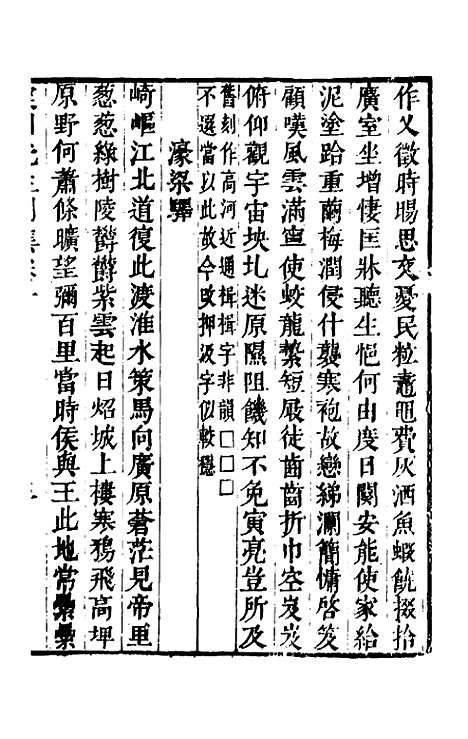 作乂徵時暘思文憂民粒鼃黽費灰洒魚蝦飽掇拾
廣室坐增悽匡牀聽生悒何由度日閱安能使家給
泥塗跲重繭梅潤侵什襲寒袍故戀綈瀾簡慵啓笈
顧嘆風雲滿寧使蛟龍蟄短屐徒齒齒折巾空岌岌
俯仰觀宇宙坱圠迷原隰阻饑知不免寅亮豈所及
舊刻作高河近通揖揖字非韻□□□
不選當以此故今改押汲字似較穩
濠梁驛
崎嶇江北道復此渡淮水策馬向廣原蒼茫見帝里
葱葱綠樹陵鬱鬱紫雲起日炤城上樓寒鴉飛高埤
原野何蕭條曠望彌百里當時侯與王此地常纍纍